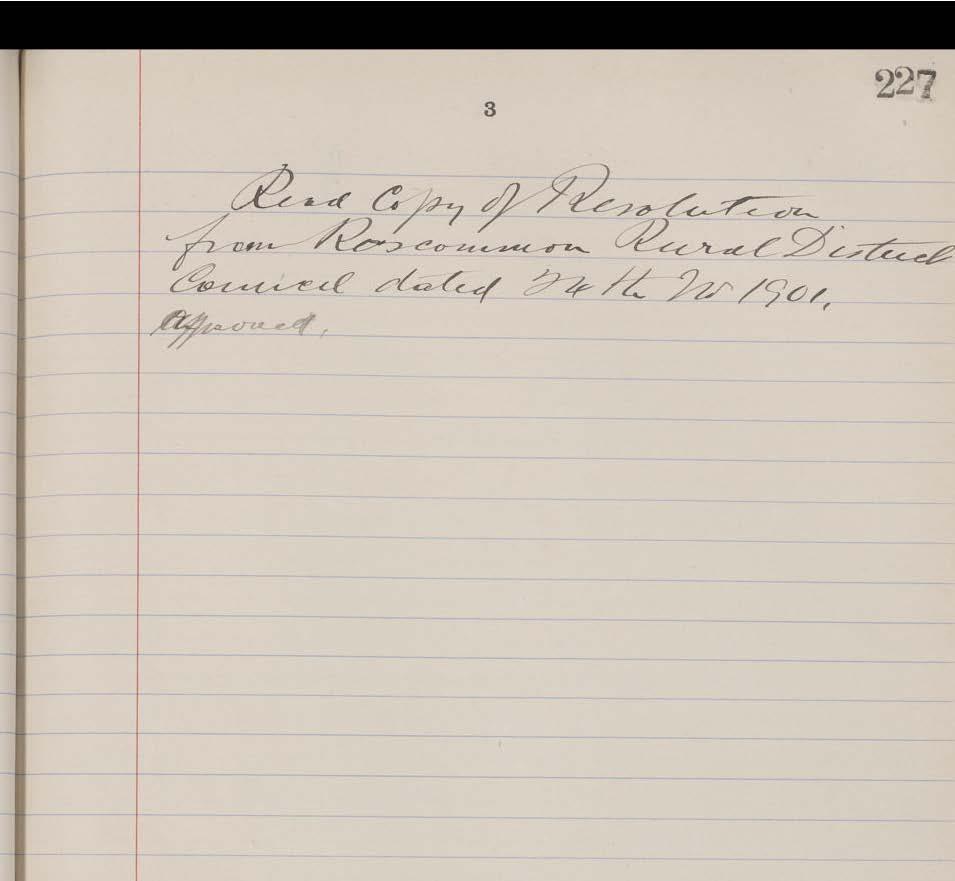 227
3
Read Copy of Resolution
from Roscommon Rural District
Council dated 24th Nov 1901.
Approved.